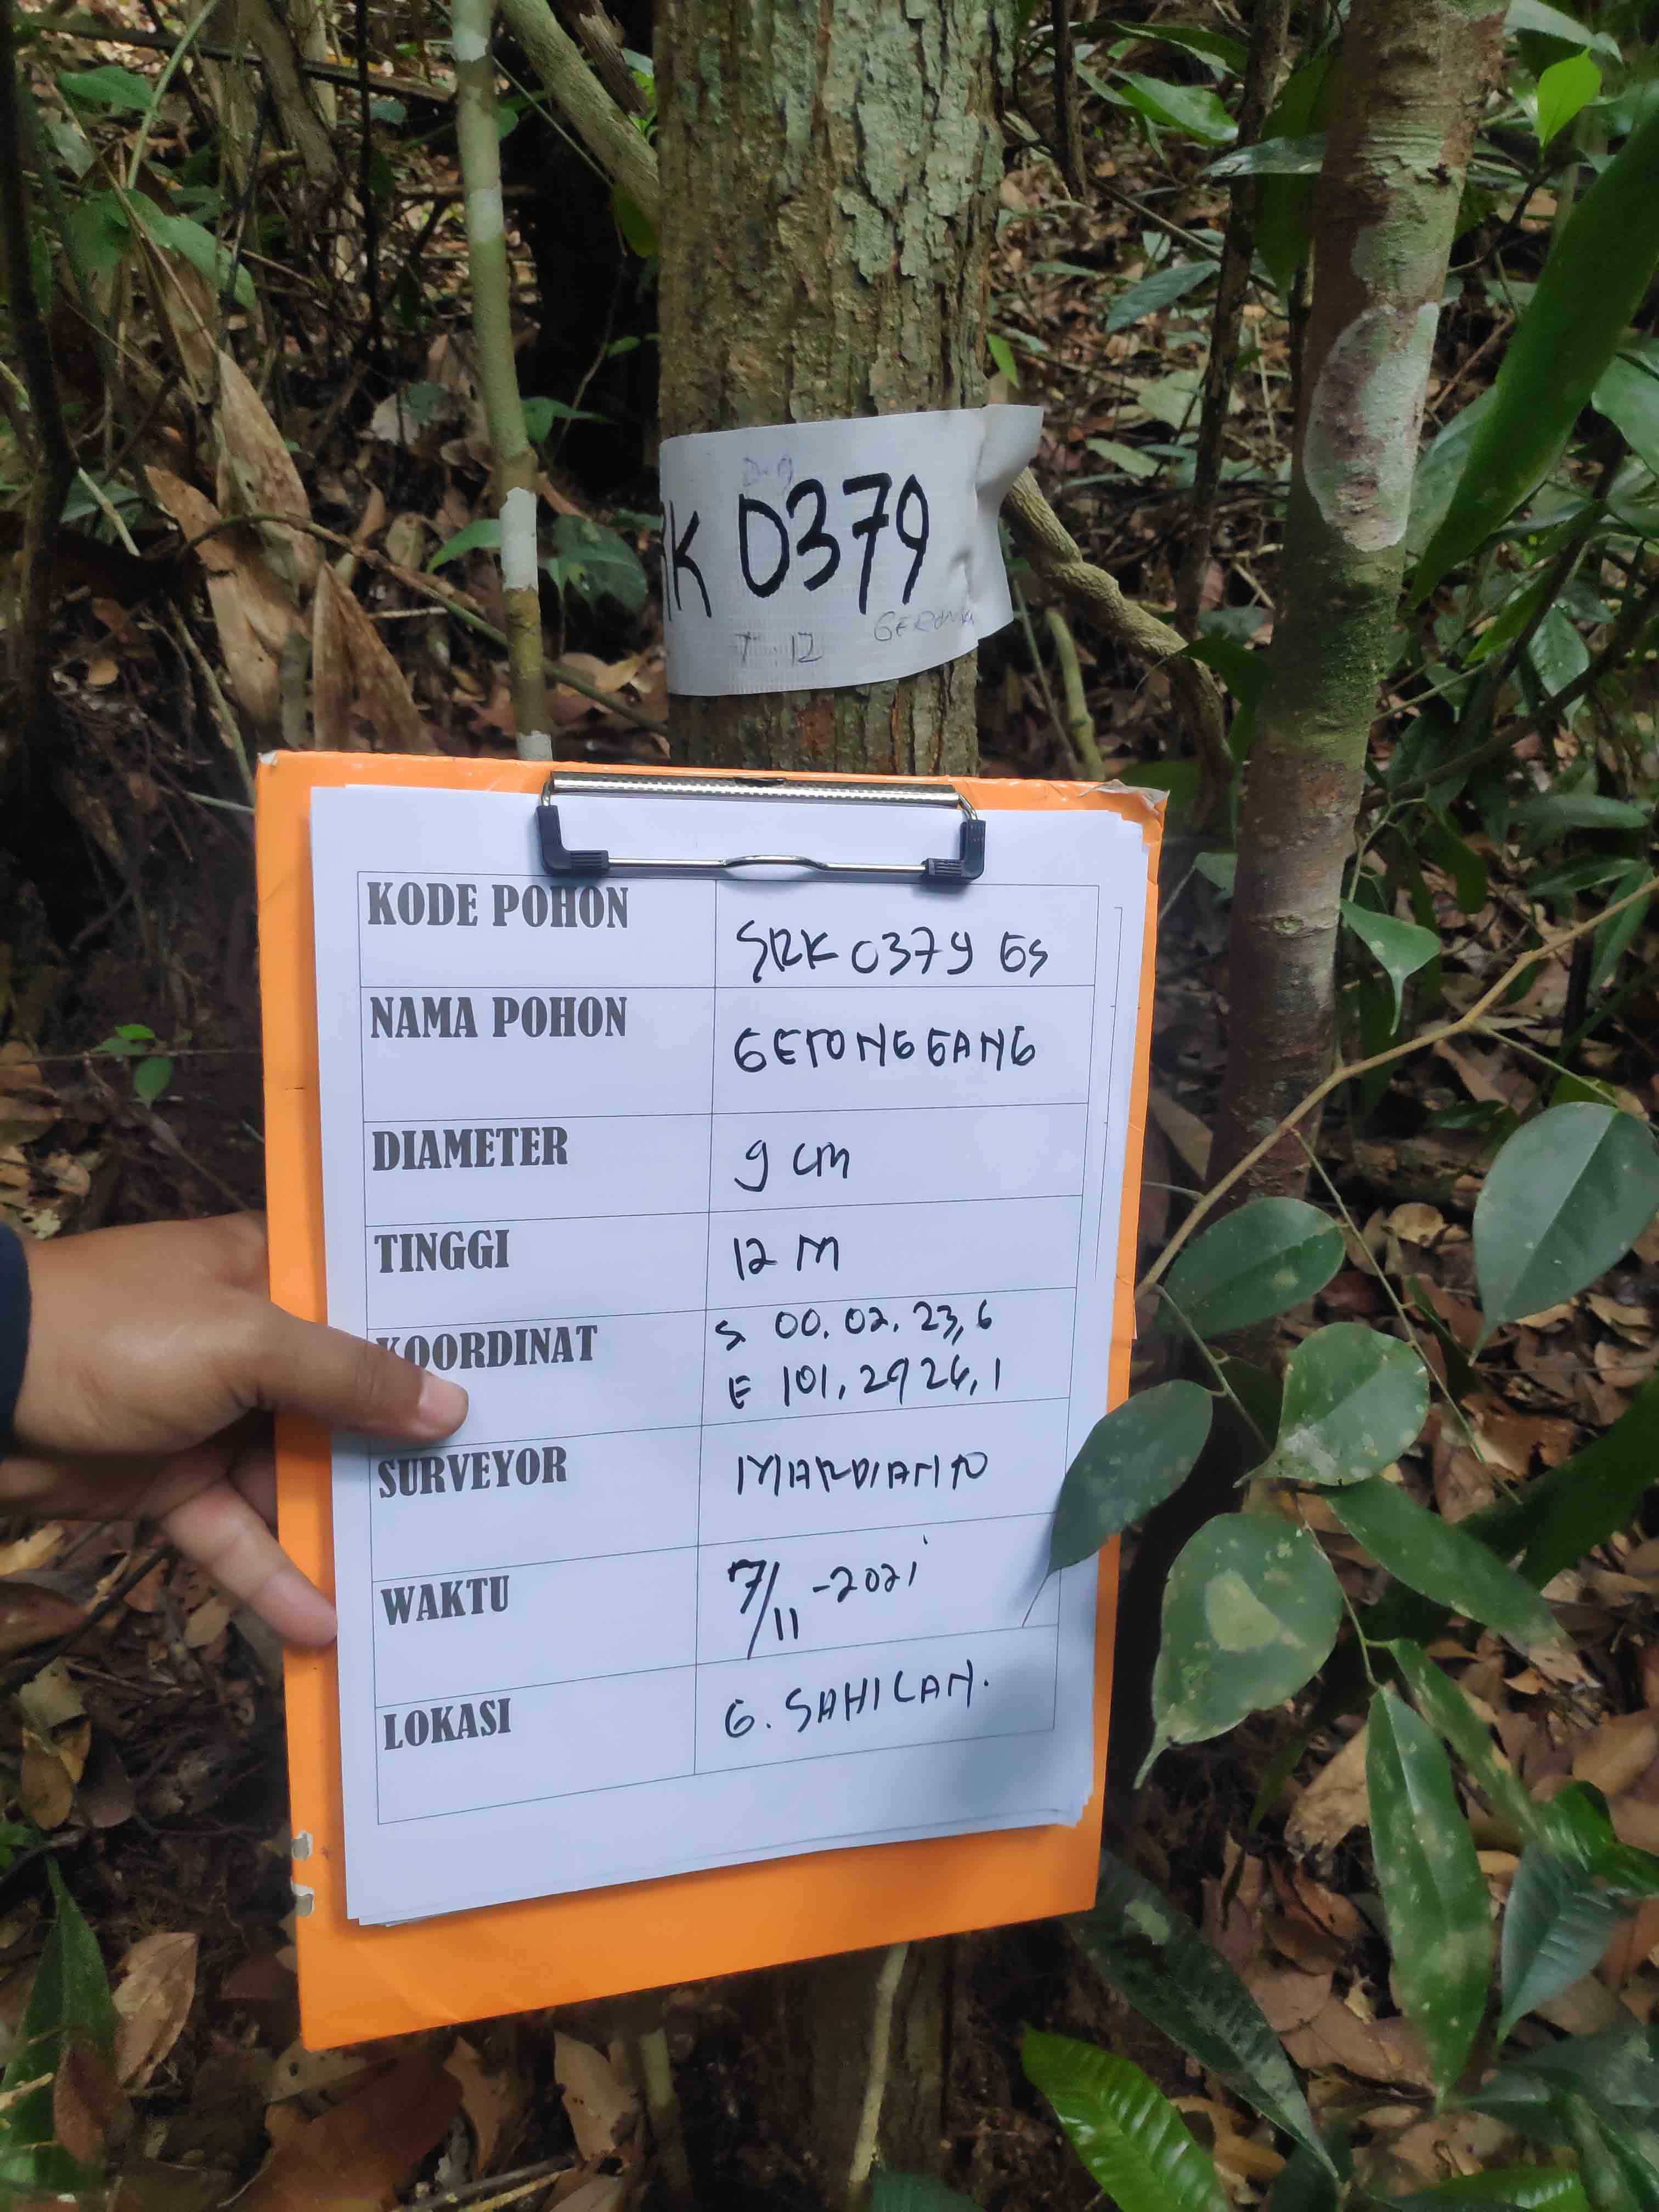 RK 0379
T 12
KODE POHON SRK 0379 GS
NAMA POHON GERONGGANG
DIAMETER 9 cm
TINGGI 12 M
KOORDINAT S 00. 02. 23,6
E 101, 29 26, 1
SURVEYOR MARDIANTO
WAKTU 7/11 -2021
LOKASI G. SAHILAN.